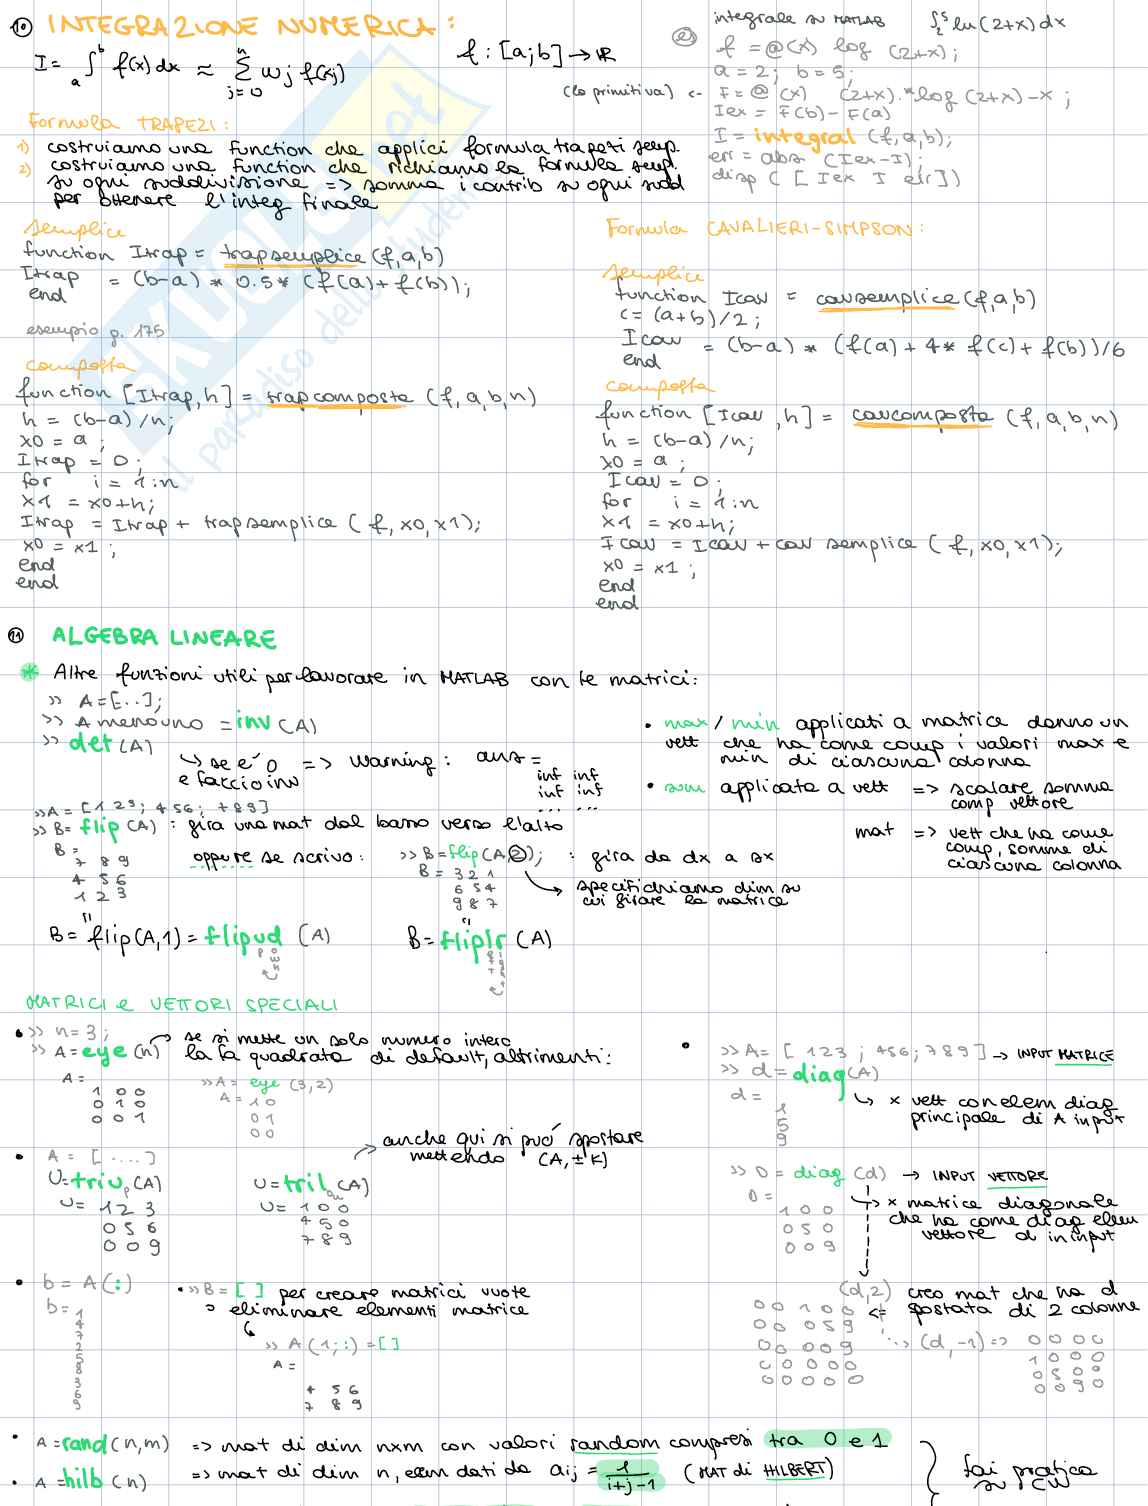 10 INTEGRAZIONE NUMERICA:
I = ∫_a^b f(x) dx ≈ Σ_{j=0}^n wj f(xj)
f : [a;b] → ℝ
es) integrale su MATLAB ∫_2^5 ln(2+x) dx
f = @(x) log (2+x);
a = 2; b = 5;
(la primitiva) <- F = @(x) (2+x).*log(2+x)-x ;
Iex = F(b) - F(a)
I = integral (f,a,b);
err = abs (Iex-I);
disp ([Iex I err])
Formula TRAPEZI:
1) costruiamo una function che applici formula trapezi semp.
2) costruiamo una function che richiamo la formula semp.
su ogni suddivisione => somma i contrib su ogni sudd
per ottenere l'integ finale
semplice
function Itrap = trapsemplice (f,a,b)
Itrap = (b-a) * 0.5 * (f(a) + f(b));
end
esempio p. 175
composta
function [Itrap, h] = trapcomposta (f, a, b, n)
h = (b-a) /n;
x0 = a ;
Itrap = 0 ;
for i = 1:n
x1 = x0+h;
Itrap = Itrap + trapsemplice ( f, x0, x1);
x0 = x1 ;
end
end
Formula CAVALIERI-SIMPSON:
semplice
function Icav = cavsemplice (f,a,b)
c = (a+b) /2 ;
Icav = (b-a) * (f(a) + 4* f(c) + f(b))/6
end
composta
function [Icav , h] = cavcomposta (f, a, b, n)
h = (b-a) /n;
x0 = a ;
Icav = 0 ;
for i = 1:n
x1 = x0+h;
Icav = Icav + cavsemplice ( f, x0, x1);
x0 = x1 ;
end
end
11 ALGEBRA LINEARE
* Altre funzioni utili per lavorare in MATLAB con le matrici:
>> A=[...];
>> Amenouno = inv (A)
>> det (A)
↳ se è 0 => Warning: ans =
e faccio inv
inf inf
inf inf
... ...
• max / min applicati a matrice danno un
vett che ha come comp i valori max e
min di ciascuna colonna
• sum applicata a vett => scalare somma
comp vettore
mat => vett che ha come
comp, somme di
ciascuna colonna
>>A = [1 2 3; 4 5 6; 7 8 9]
>> B= flip (A) : gira una mat dal basso verso l'alto
B =
7 8 9
4 5 6
1 2 3
oppure se scrivo:
>> B=flip(A,2); : gira da dx a sx
B = 3 2 1
6 5 4
9 8 7
specifichiamo dim su
cui girare la matrice
B = flip(A,1) = flipud (A)
up
down
B = fliplr (A)
left
right
MATRICI e VETTORI SPECIALI
• >> n=3;
>> A=eye(n) → se si mette un solo numero intero
la fa quadrata di default, altrimenti:
A =
1 0 0
0 1 0
0 0 1
>>A = eye (3,2)
A = 1 0
0 1
0 0
• >>A= [ 123 ; 456; 789 ] → INPUT MATRICE
>> d=diag(A)
d =
1
5
9
↳ x vett con elem diag
principale di A input
• A = [....]
U=triu(A)
up
U= 1 2 3
0 5 6
0 0 9
U=tril(A)
U= 1 0 0
4 5 0
7 8 9
→ anche qui si può spostare
mettendo (A, ±K)
>> D = diag (d) → INPUT VETTORE
D =
1 0 0
0 5 0
0 0 9
↳ x matrice diagonale
che ha come diag elem
vettore d in input
(d,2) creo mat che ha d
<= spostata di 2 colonne
0 0 1 0 0
0 0 0 5 9
0 0 0 0 9
0 0 0 0 0
0 0 0 0 0
(d,-1) => 0 0 0 0
1 0 0 0
0 5 0 0
0 0 9 0
• b = A(:)
b=
1
4
7
2
5
8
3
6
9
• >>B = [ ] per creare matrici vuote
o eliminare elementi matrice
↳
>> A(1;:) = [ ]
A =
4 5 6
7 8 9
• A=rand(n,m) => mat di dim nxm con valori random compresi tra 0 e 1
• A=hilb(n) => mat di dim n, elem dati da aij = 1/(i+j-1) (MAT di HILBERT)
fai pratica
su CW
SKUOLA.net
il paradiso dello studente